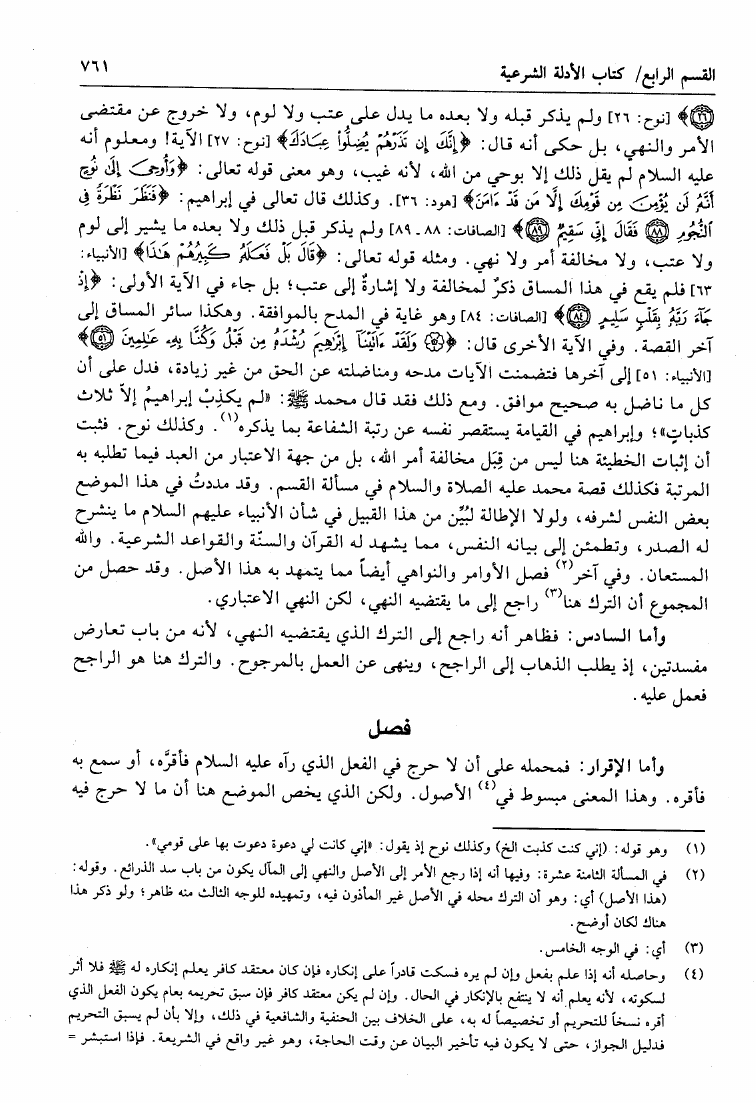 القسم الرابع/ كتاب الأدلة الشرعية ٧٦١
﴿٢٦﴾ [نوح: ٢٦] ولم يذكر قبله ولا بعده ما يدل على عتب ولا لوم، ولا خروج عن مقتضى
الأمر والنهي، بل حكى أنه قال: ﴿إِنَّكَ إِن تَذَرْهُمْ يُضِلُّوا۟ عِبَادَكَ﴾ [نوح: ٢٧] الآية! ومعلوم أنه
عليه السلام لم يقل ذلك إلا بوحي من الله، لأنه غيب، وهو معنى قوله تعالى: ﴿وَأُوحِىَ إِلَىٰ نُوحٍ
أَنَّهُۥ لَن يُؤْمِنَ مِن قَوْمِكَ إِلَّا مَن قَدْ ءَامَنَ﴾ [هود: ٣٦]. وكذلك قال تعالى في إبراهيم: ﴿فَنَظَرَ نَظْرَةً فِى
ٱلنُّجُومِ ﴿٨٨﴾ فَقَالَ إِنِّى سَقِيمٌ ﴿٨٩﴾﴾ [الصافات: ٨٨ ـ ٨٩] ولم يذكر قبل ذلك ولا بعده ما يشير إلى لوم
ولا عتب، ولا مخالفة أمر ولا نهي. ومثله قوله تعالى: ﴿قَالَ بَلْ فَعَلَهُۥ كَبِيرُهُمْ هَٰذَا﴾ [الأنبياء:
٦٣] فلم يقع في هذا المساق ذكرٌ لمخالفة ولا إشارةٌ إلى عتب؛ بل جاء في الآية الأولى: ﴿إِذْ
جَآءَ رَبَّهُۥ بِقَلْبٍ سَلِيمٍ ﴿٨٤﴾﴾ [الصافات: ٨٤] وهو غاية في المدح بالموافقة. وهكذا سائر المساق إلى
آخر القصة. وفي الآية الأخرى قال: ﴿۞ وَلَقَدْ ءَاتَيْنَآ إِبْرَٰهِيمَ رُشْدَهُۥ مِن قَبْلُ وَكُنَّا بِهِۦ عَٰلِمِينَ ﴿٥١﴾﴾
[الأنبياء: ٥١] إلى آخرها فتضمنت الآيات مدحه ومناضلته عن الحق من غير زيادة، فدل على أن
كل ما ناضل به صحيح موافق. ومع ذلك فقد قال محمد ﷺ: «لم يكذِبْ إبراهيمُ إلاّ ثلاث
كذباتٍ»؛ وإبراهيم في القيامة يستقصر نفسه عن رتبة الشفاعة بما يذكره(١). وكذلك نوح. فثبت
أن إثبات الخطيئة هنا ليس من قِبَل مخالفة أمر الله، بل من جهة الاعتبار من العبد فيما تطلبه به
المرتبة فكذلك قصة محمد عليه الصلاة والسلام في مسألة القسم. وقد مددتُ في هذا الموضع
بعض النفس لشرفه، ولولا الإطالة لبُيِّن من هذا القبيل في شأن الأنبياء عليهم السلام ما ينشرح
له الصدر، وتطمئن إلى بيانه النفس، مما يشهد له القرآن والسنّة والقواعد الشرعية. والله
المستعان. وفي آخر(٢) فصل الأوامر والنواهي أيضاً مما يتمهد به هذا الأصل. وقد حصل من
المجموع أن الترك هنا(٣) راجع إلى ما يقتضيه النهي، لكن النهي الاعتباري.
وأما السادس: فظاهر أنه راجع إلى الترك الذي يقتضيه النهي، لأنه من باب تعارض
مفسدتين، إذ يطلب الذهاب إلى الراجح، وينهى عن العمل بالمرجوح. والترك هنا هو الراجح
فعمل عليه.
فصل
وأما الإقرار: فمحمله على أن لا حرج في الفعل الذي رآه عليه السلام فأقرَّه، أو سمع به
فأقره. وهذا المعنى مبسوط في(٤) الأصول. ولكن الذي يخص الموضع هنا أن ما لا حرج فيه
(١) وهو قوله: (إني كنت كذبت الخ) وكذلك نوح إذ يقول: «إني كانت لي دعوة دعوت بها على قومي».
(٢) في المسألة الثامنة عشرة: وفيها أنه إذا رجع الأمر إلى الأصل والنهي إلى المآل يكون من باب سد الذرائع. وقوله:
(هذا الأصل) أي: وهو أن الترك محله في الأصل غير المأذون فيه، وتمهيده للوجه الثالث منه ظاهر؛ ولو ذكر هذا
هناك لكان أوضح.
(٣) أي: في الوجه الخامس.
(٤) وحاصله أنه إذا علم بفعل وإن لم يره فسكت قادراً على إنكاره فإن كان معتقد كافر يعلم إنكاره له ﷺ فلا أثر
لسكوته، لأنه يعلم أنه لا ينتفع بالإنكار في الحال. وإن لم يكن معتقد كافر فإن سبق تحريمه بعام يكون الفعل الذي
أقره نسخاً للتحريم أو تخصيصاً له به، على الخلاف بين الحنفية والشافعية في ذلك، وإلا بأن لم يسبق التحريم
فدليل الجواز، حتى لا يكون فيه تأخير البيان عن وقت الحاجة، وهو غير واقع في الشريعة. فإذا استبشر =